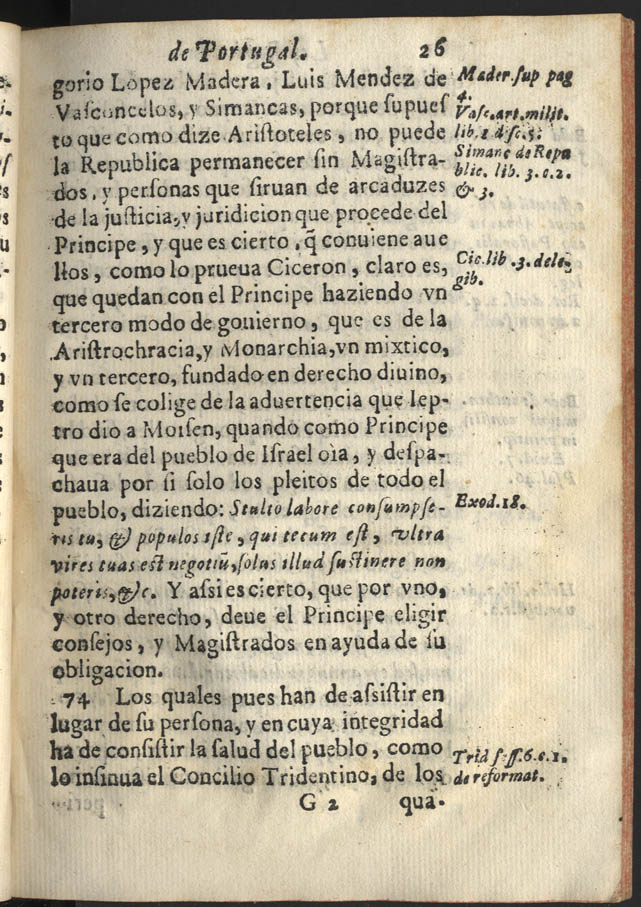 de Portugal. 26
gorio Lopez Madera, Luis Mendez de
Vaſconcelos, y Simancas, porque ſupueſ
to que como dize Ariſtoteles, no puede
la Republica permanecer ſin Magiſtra-
dos, y perſonas que ſiruan de arcaduzes
de la juſticia, y juridicion que procede del
Principe, y que es cierto, q̃ conuiene aue
llos, como lo prueua Ciceron, claro es,
que quedan con el Principe haziendo vn
tercero modo de gouierno, que es de la
Ariſtrochracia, y Monarchia, vn mixtico,
y vn tercero, fundado en derecho diuino,
como ſe colige de la aduertencia que Iep-
tro dio a Moiſen, quando como Principe
que era del pueblo de Iſrael oìa, y deſpa-
chaua por ſi ſolo los pleitos de todo el
pueblo, diziendo: Stulto labore conſumpſe-
ris tu, & populos iſte, qui tecum eſt, vltra
vires tuas eſt negotiũ, ſolus illud ſuſtinere non
poteris, &c. Y aſsi es cierto, que por vno,
y otro derecho, deue el Principe eligir
conſejos, y Magiſtrados en ayuda de ſu
obligacion.
74 Los quales pues han de aſsiſtir en
lugar de ſu perſona, y en cuya integridad
ha de conſiſtir la ſalud del pueblo, como
lo inſinua el Concilio Tridentino, de los
G 2 qua-
Mader. ſup pag
4.
Vaſc. art. milit.
lib. 1 diſc. 5.
Simanc de Repu
blic. lib. 3. c. 2.
& 3.
Cic. lib. 3. de le-
gib.
Exod. 18.
Trid ſeſſ. 6. c. 1.
de reformat.